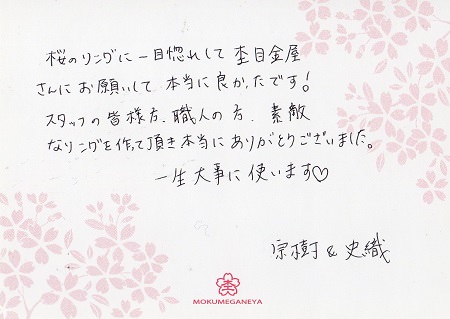 桜のリングに一目惚れして杢目金屋
さんにお願いして本当に良かったです!
スタッフの皆様方、職人の方、素敵
なリングを作って頂き本当にありがとうございました。
一生大事に使います♡
宗樹 & 史織
MOKUMEGANEYA